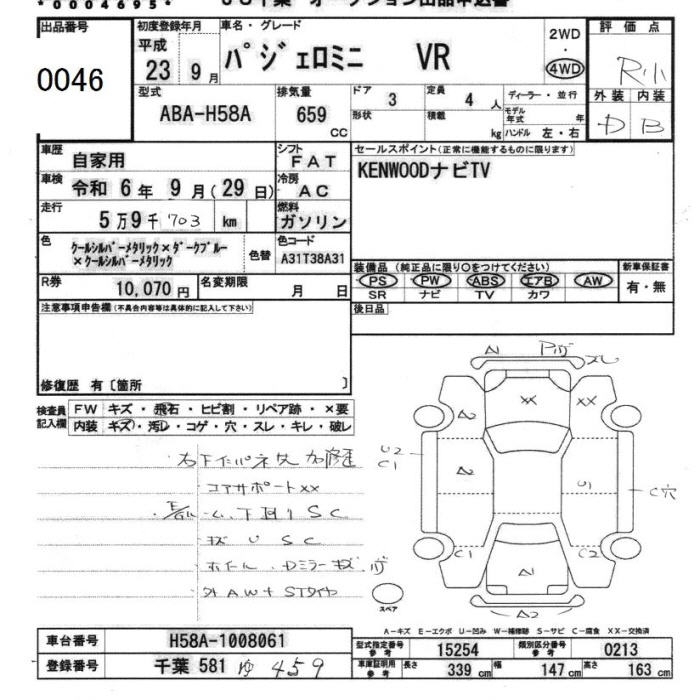 *0004695*
出品番号
0046
初度登録年月
平成
23 9月
車名・グレード
パジェロミニ VR
2WD
・
4WD
評価点
R小
外装 内装
D B
型式
ABA-H58A
排気量
659
CC
ドア
3
形状
定員
4 人
積載
kg
ディーラー・並行
モデル年式 年
ハンドル 左・右
車歴
自家用
シフト
FAT
セールスポイント(正常に機能するものに限ります)
KENWOODナビTV
車検
令和 6年 9月(29日)
冷房
AC
走行
5万9千703 km
燃料
ガソリン
色
クールシルバーメタリック×ダークブルー
×クールシルバーメタリック
色替
色コード
A31T38A31
装備品(純正品に限り○をつけてください)
PS PW ABS エアB AW
SR ナビ TV カワ
新車保証書
有・無
R券
10,070円
名変期限
月 日
後日品
注意事項申告欄(不具合内容等は具体的に記入して下さい)
修復歴 有〔箇所 〕
検査員
記入欄
FW キズ・飛石・ヒビ割・リペア跡・×要
内装 キズ・汚レ・コゲ・穴・スレ・キレ・破レ
コアサポートXX
下回りSC
キズ U SC
ホイール・Dミラーキズ
外AW+STタイヤ
A1
XX
XX
A2
A2
U2
C1
U1
C穴
C1
C2
A1
A2
スペア
A-キズ E-エクボ U-凹み W-補修跡 S-サビ C-腐食 XX-交換済
車台番号
H58A-1008061
登録番号
千葉 581 ゆ 459
型式指定番号
参考
15254
類別区分番号
参考
0213
車庫証明用
参考
長さ
339 cm
幅
147 cm
高さ
163 cm